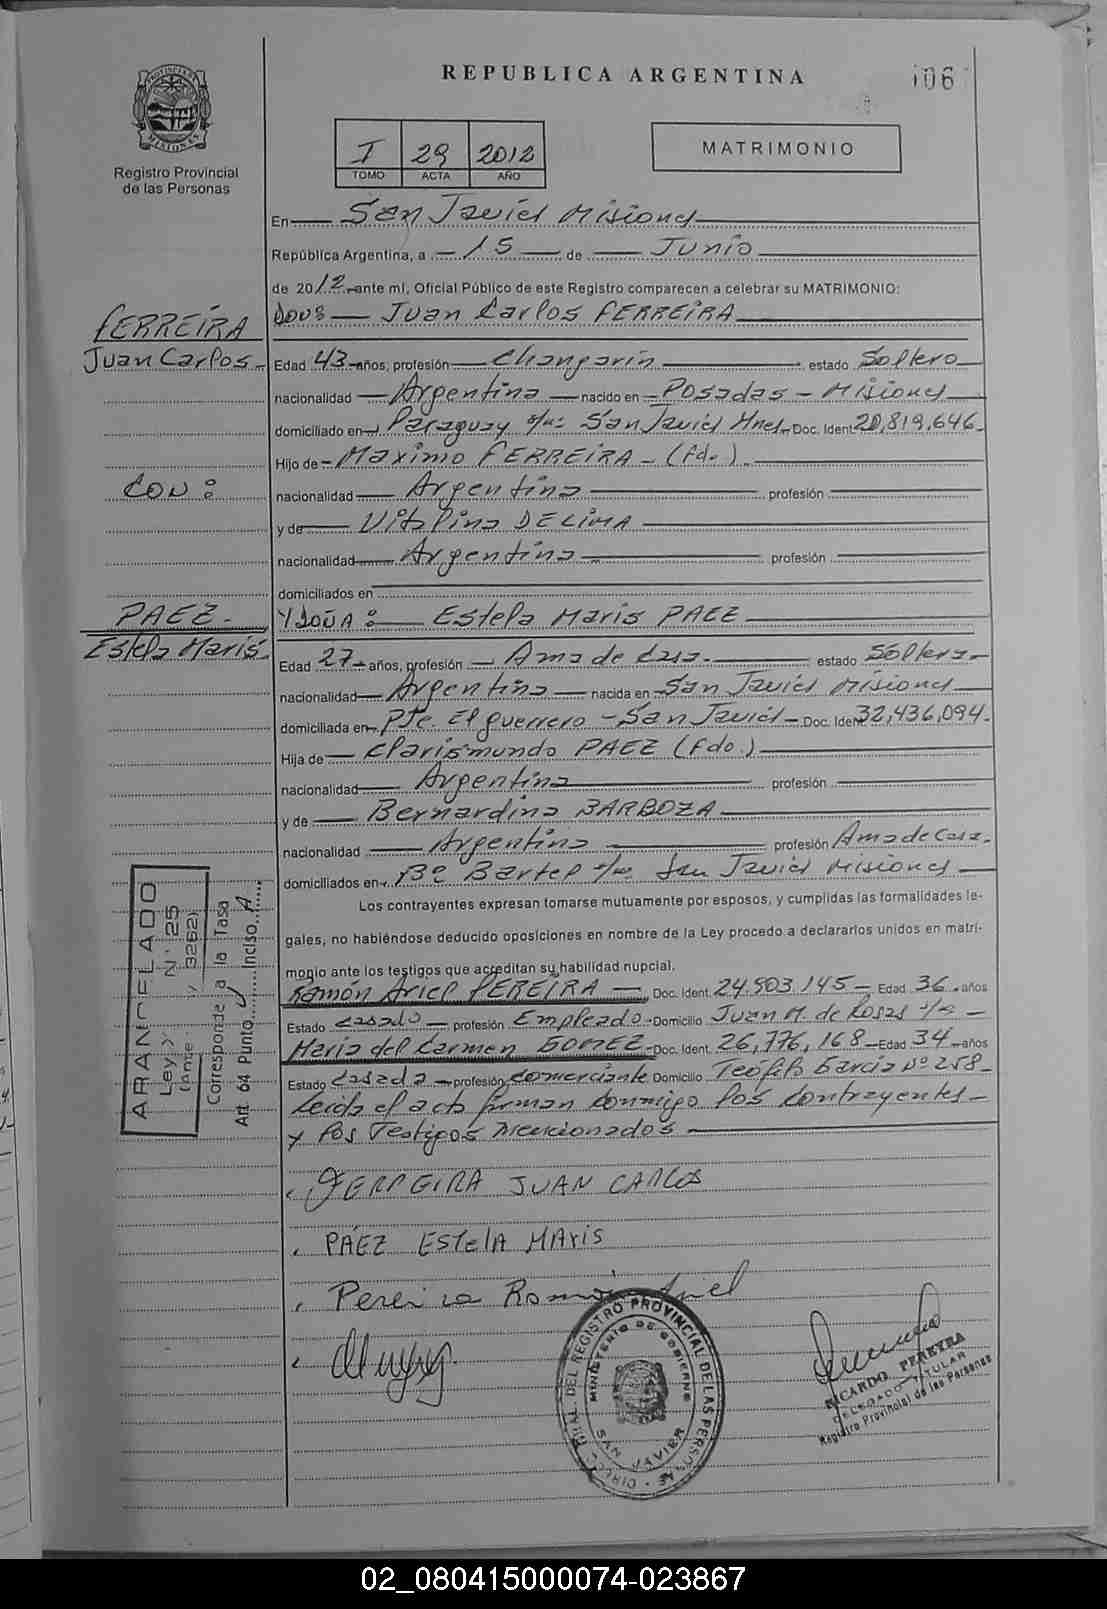 REPUBLICA ARGENTINA
106
PROVINCIA DE MISIONES
Registro Provincial
de las Personas
I 29 2012
TOMO ACTA AÑO
MATRIMONIO
En San Javier Misiones
República Argentina, a 15 de Junio
de 2012 ante mí, Oficial Público de este Registro comparecen a celebrar su MATRIMONIO:
FERREIRA
Juan Carlos
CON:
PAEZ
Estela Maris
Don: Juan Carlos FERREIRA
Edad 43 años, profesión Changarin estado Soltero
nacionalidad Argentina nacido en Posadas - Misiones
domiciliado en Paraguay s/n: San Javier Mnes Doc. Ident. 20,819,646
Hijo de Maximo FERREIRA - (fdo.)
nacionalidad Argentina profesión
y de Vitalina DE LIMA
nacionalidad Argentina profesión
domiciliados en
Y DOÑA: Estela Maris PAEZ
Edad 27 años, profesión Ama de Casa. estado Soltera
nacionalidad Argentina nacida en San Javier Misiones
domiciliada en Pje. El guerrero - San Javier Doc. Iden 32,436,094
Hija de Clarismundo PAEZ (fdo.)
nacionalidad Argentina profesión
y de Bernardina BARBOZA
nacionalidad Argentina profesión Ama de Casa.
domiciliados en Bº s/n San Javier Misiones
Los contrayentes expresan tomarse mutuamente por esposos, y cumplidas las formalidades le-
gales, no habiéndose deducido oposiciones en nombre de la Ley procedo a declararlos unidos en matri-
monio ante los testigos que acreditan su habilidad nupcial.
Ramón Ariel PEREIRA Doc. Ident. 24.903.145 Edad 36 años
Estado Casado profesión Empleado Domicilio Juan M. de Rosas s/n
Maria del Carmen GOMEZ Doc. Ident. 26,776,168 Edad 34 años
Estado Casada profesión Comerciante Domicilio Teofilo Garcia Nº 258
Leida el acta firman conmigo los contrayentes
y los Testigos mencionados
ARANCELADO
Ley XXII Nº 25
(ante 3262)
Corresponde a la Tasa
Art. 64 Punto Inciso A
FERREIRA JUAN CARLOS
PÁEZ ESTELA MARIS
Pereira Ramón Ariel
DEL REGISTRO PROVINCIAL DE LAS PERSONAS
MINISTERIO DE GOBIERNO
SAN JAVIER
RICARDO PEREYRA
DELEGADO TITULAR
Registro Provincial de las Personas
02_080415000074-023867